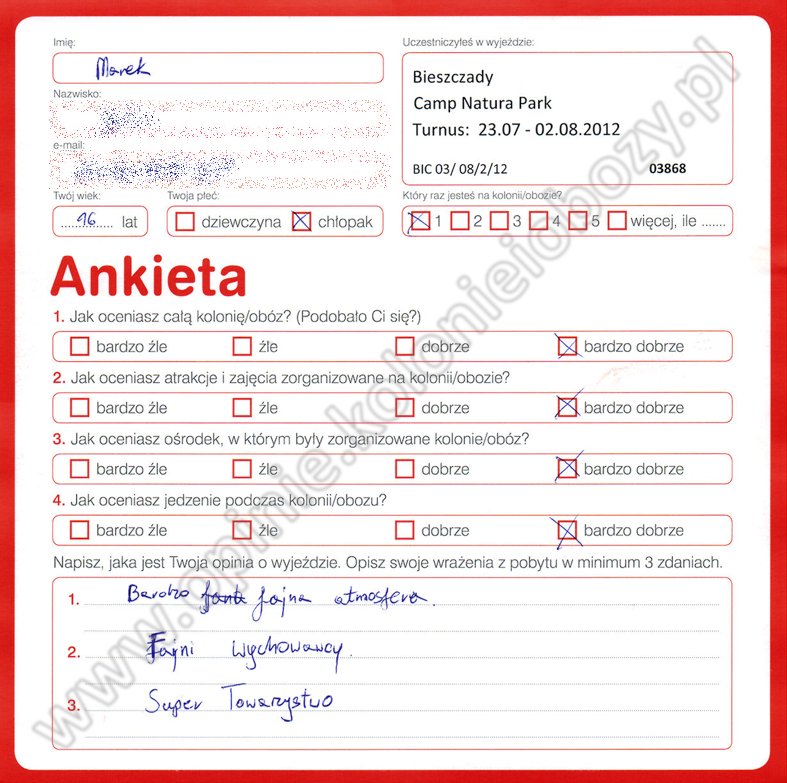 Imię:
Marek
Uczestniczyłeś w wyjeździe:
Bieszczady
Camp Natura Park
Turnus: 23.07 - 02.08.2012
BIC 03/ 08/2/12 03868
Nazwisko:
e-mail:
Twój wiek:
16 lat
Twoja płeć:
dziewczyna chłopak
Który raz jesteś na kolonii/obozie?
1 2 3 4 5 więcej, ile .......
Ankieta
1. Jak oceniasz całą kolonię/obóz? (Podobało Ci się?)
bardzo źle źle dobrze bardzo dobrze
2. Jak oceniasz atrakcje i zajęcia zorganizowane na kolonii/obozie?
bardzo źle źle dobrze bardzo dobrze
3. Jak oceniasz ośrodek, w którym były zorganizowane kolonie/obóz?
bardzo źle źle dobrze bardzo dobrze
4. Jak oceniasz jedzenie podczas kolonii/obozu?
bardzo źle źle dobrze bardzo dobrze
Napisz, jaka jest Twoja opinia o wyjeździe. Opisz swoje wrażenia z pobytu w minimum 3 zdaniach.
1. Bardzo fajna atmosfera.
2. Fajni wychowawcy.
3. Super Towarzystwo
www.opinie.kolonieiobozy.pl